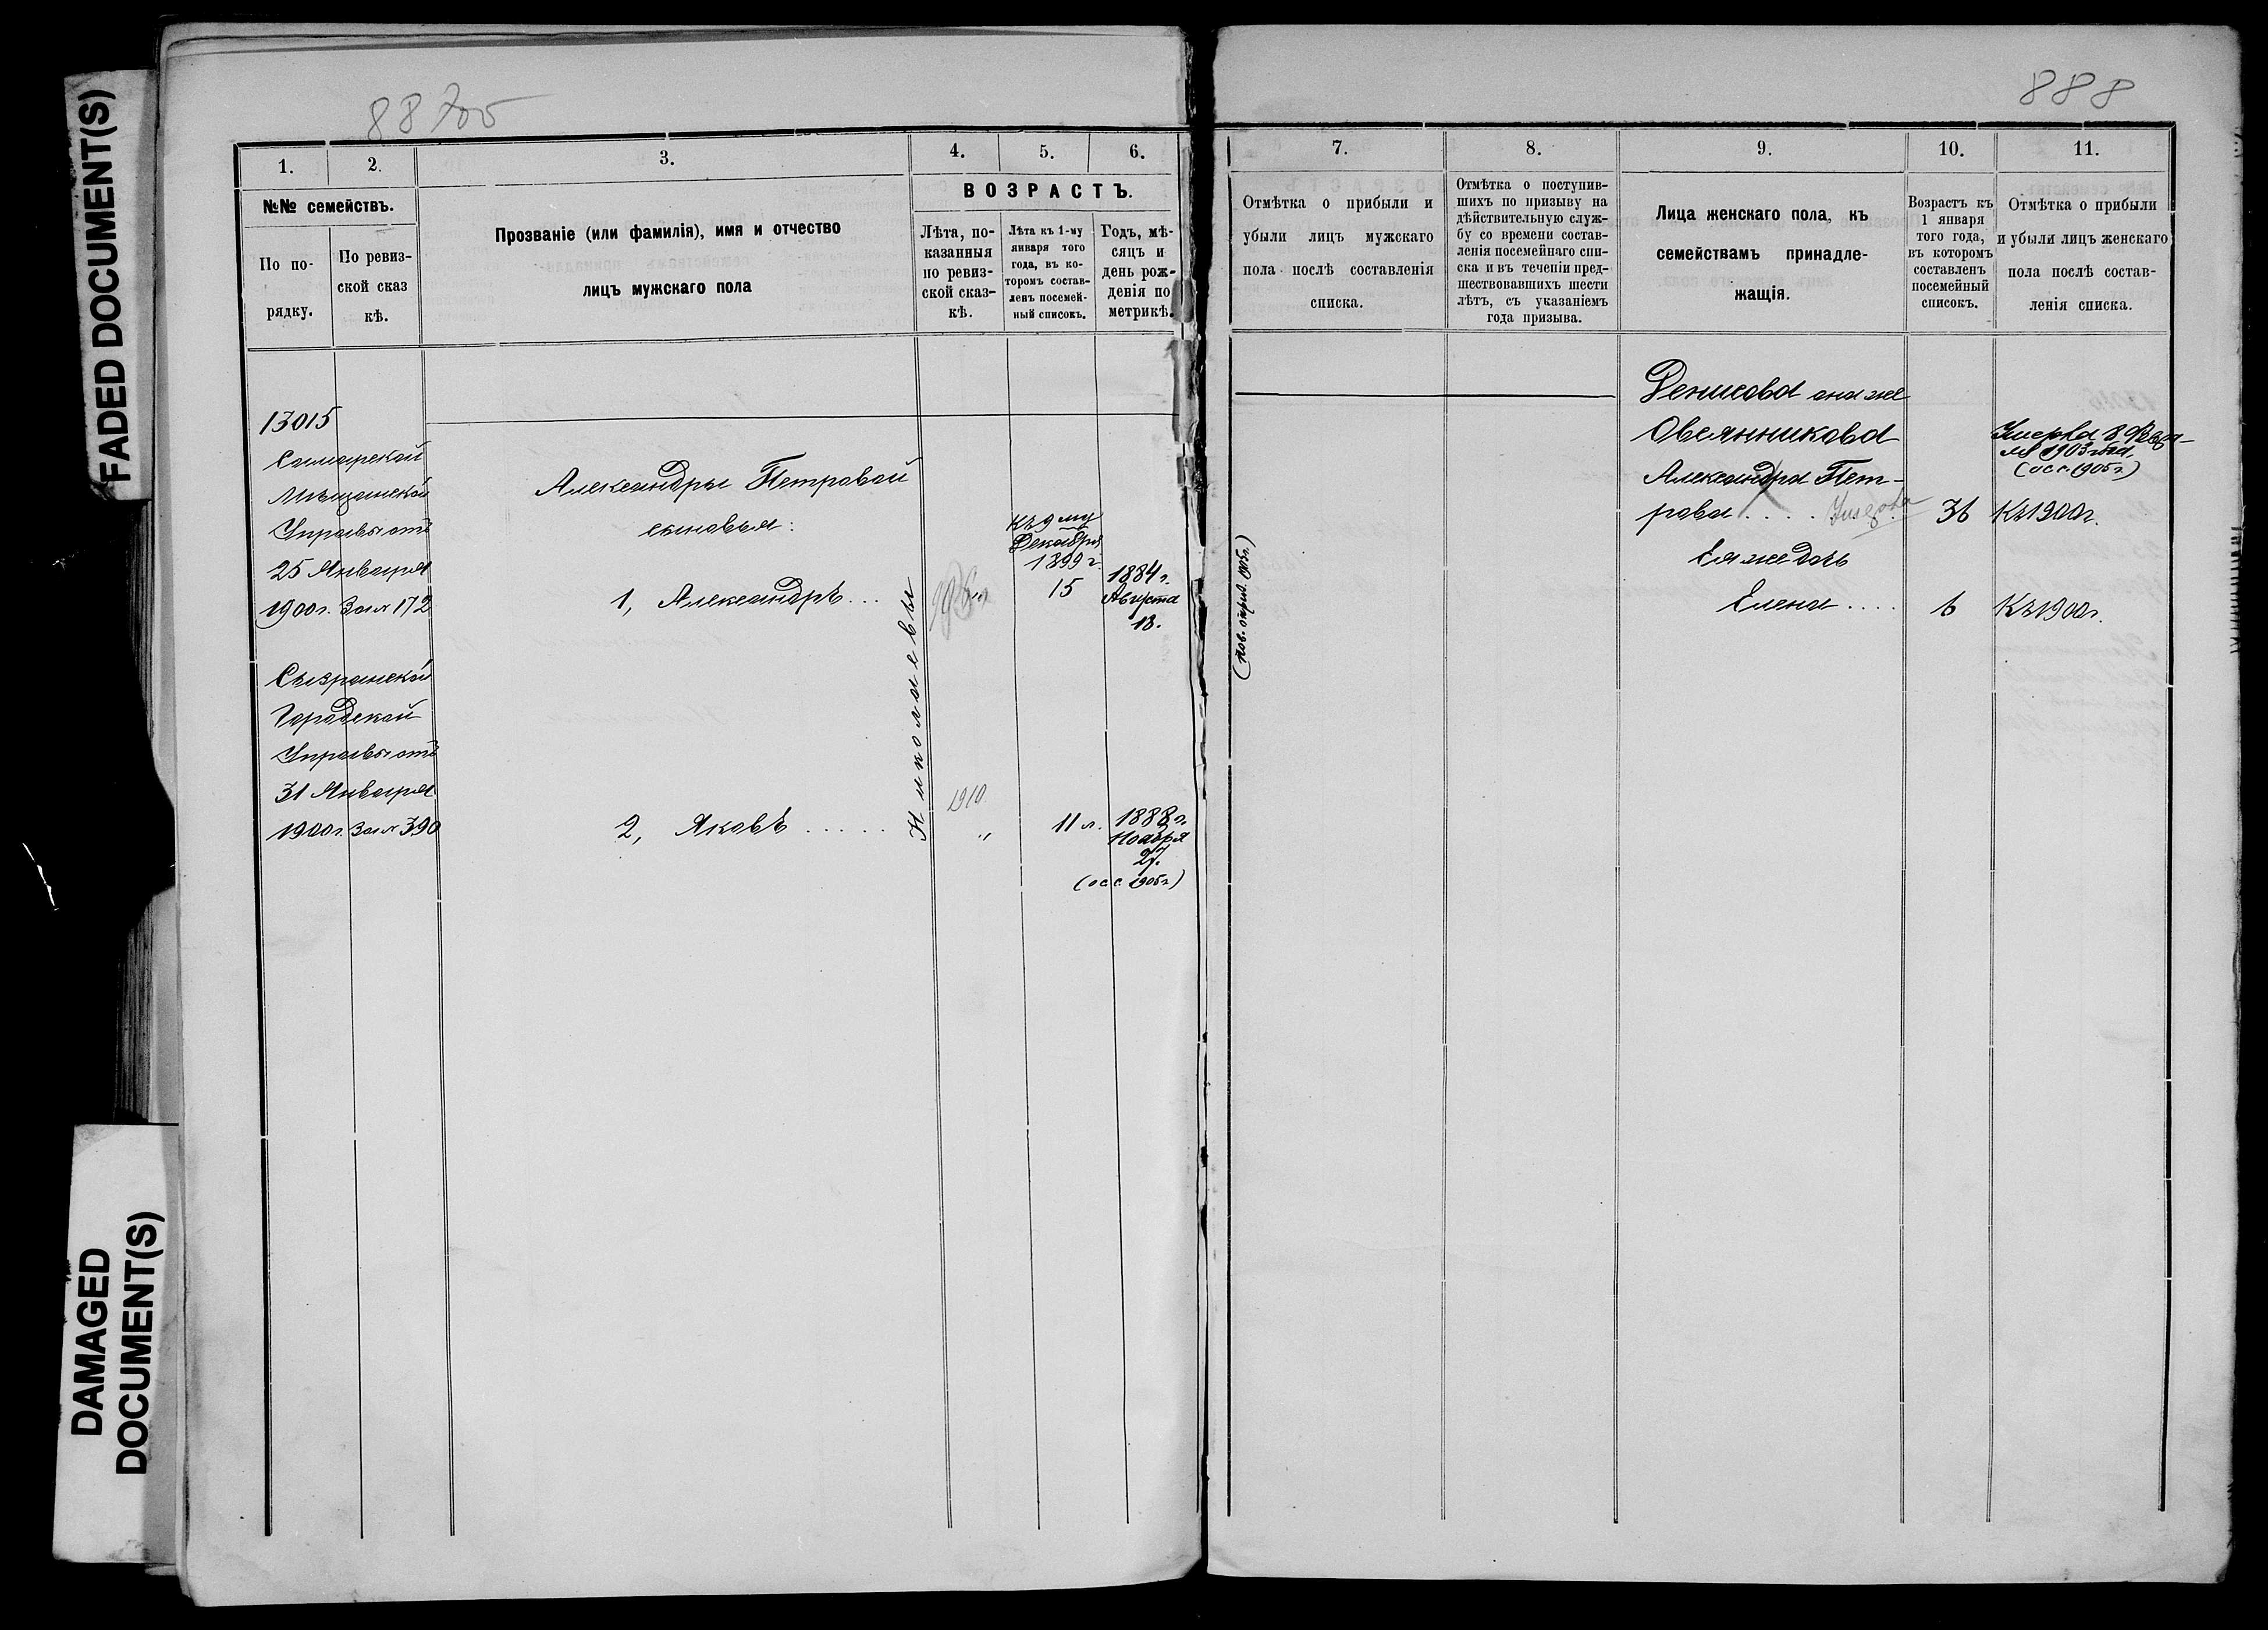 FADED DOCUMENT(S)
DAMAGED
DOCUMENT(S)
1.
2.
3.
4.
5.
6.
№№ семействъ.
По по-
рядку.
По ревиз-
ской сказ
кѣ.
Прозваніе (или фамилія), имя и отчество
лицъ мужскаго пола
ВОЗРАСТЪ.
Лѣта, по-
казанныя
по ревиз-
ской сказ-
кѣ.
Лѣта къ 1-му
января того
года, въ ко-
торомъ состав-
ленъ посемей-
ный списокъ.
Годъ, мѣ-
сяцъ и
день рож-
денія по
метрикѣ.
13015
Самарской
Мѣщанской
Управы отъ
25 Января
1900 г. За № 172
Сызранской
Городской
Управы отъ
31 Января
1900 г. За № 390
Александры Петровой
сыновья:
1, Александръ...
2, Яковъ.....
Николаевы
1910
"
Къ 9 му
Декабря
1899 г.
15
11 л.
1884 г.
Августа
13.
1888 г.
Ноября
27.
(осс. 1905 г.)
888
7.
8.
9.
10.
11.
Отмѣтка о прибыли и
убыли лицъ мужскаго
пола послѣ составленія
списка.
Отмѣтка о поступив-
шихъ по призыву на
дѣйствительную служ-
бу со времени состав-
ленія посемейнаго спи-
ска и въ теченіи пред-
шествовавшихъ шести
лѣтъ, съ указаніемъ
года призыва.
Лица женскаго пола, къ
семействамъ принадле-
жащія.
Возрастъ къ
1 января
того года,
въ которомъ
составленъ
посемейный
списокъ.
Отмѣтка о прибыли
и убыли лицъ женскаго
пола послѣ состав-
ленія списка.
Денисова она же
Овсянникова
Александра Пет-
рова....
36
Къ 1900 г.
Умерла 8 Февра-
ля 1903 года,
(осс. 1905 г.)
Ея же дочь
Елена....
6
Къ 1900 г.